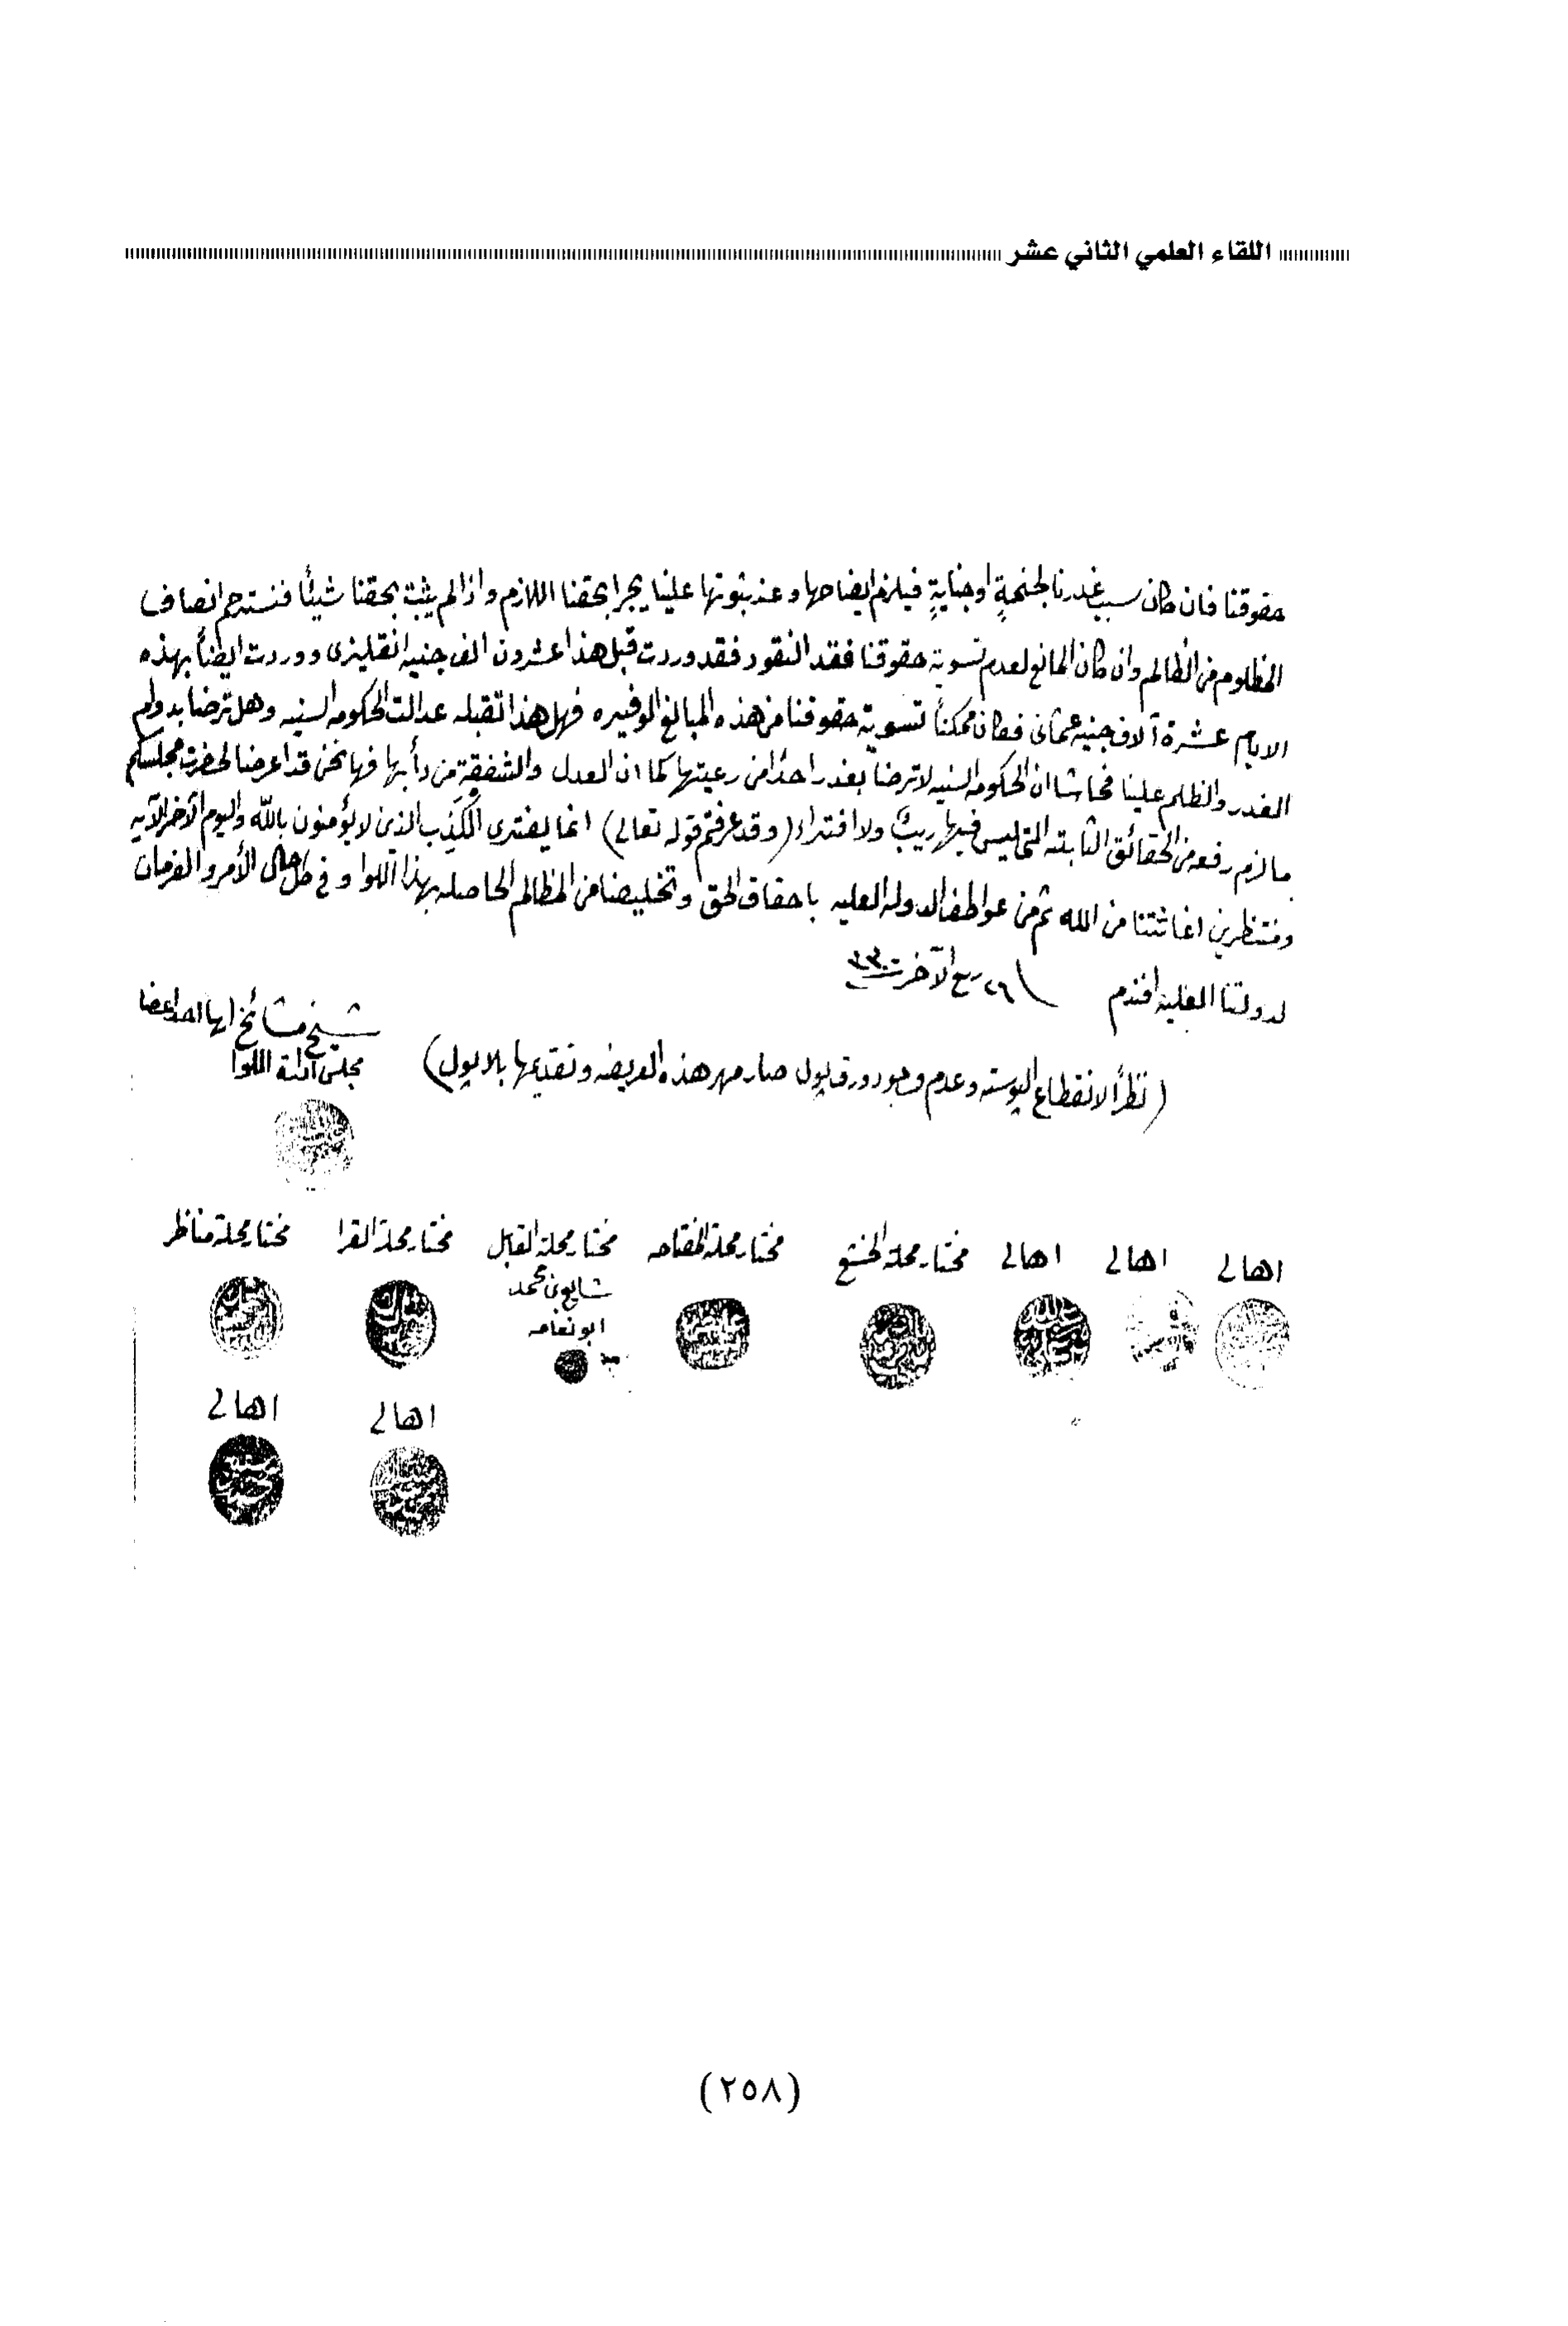 اللقاء العلمي الثاني عشر
حقوقنا فان كان سبب غدرنا لجنحةٍ او جنايةٍ فيلزم ايضاحها وعند ثبوتها علينا يجرا بحقنا اللازم واذا لم يثبت بحقنا شيئاً فنسترحم انصاف
المظلوم من الظالم وان كان المانع لعدم تسوية حقوقنا فقد النقود فقد وردت قبل هذا عشرون الف جنيه انقليزى ووردت ايضاً بهذه
الايام عشرة آلاف جنيه عثمانى فكان ممكناً تسوية حقوقنا من هذه المبالغ الوفيره فهل هذا تقبله عدالت الحكومه السنيه وهل ترضا بدوام
الغدر والظلم علينا فحاشا ان الحكومه السنيه لا ترضا بغدر احداً من رعيتها كما ان العدل والشفقة من دأبها فها نحن قد اعرضنا لحضرت مجلسكم
ما لزم رفعه من الحقائق الثابته التى ليس فيها ريبٌ ولا افتراء (وقد عرفتم قوله تعالى) انما يفترى الكذب الذين لا يؤمنون بالله واليوم الآخر الآيه
ومنتظرين اغاثتنا من الله ثم من عواطف الدوله العليه باحقاق الحق وتخليصنا من المظالم الحاصله بهذا اللوا وفي كل حال الأمر والفرمان
لدولتنا العليه افندم ٢٦ ربيع الآخر ١٣٣٠
شيخ مشائخ ابها احد اعضا
مجلس ادارة اللوا
(نظراً لانقطاع البوسته وعدم وجود ورق بول صار مهر هذه العريضه وتقديمها بلا بول)
اهالى
اهالى
اهالى
مختار محلة الخشع
مختار محلة المفتاحه
مختار محلة القابل
شايع بن محمد
ابو نعامه
مختار محلة القرا
مختار محلة مناظر
اهالى
اهالى
(٢٥٨)